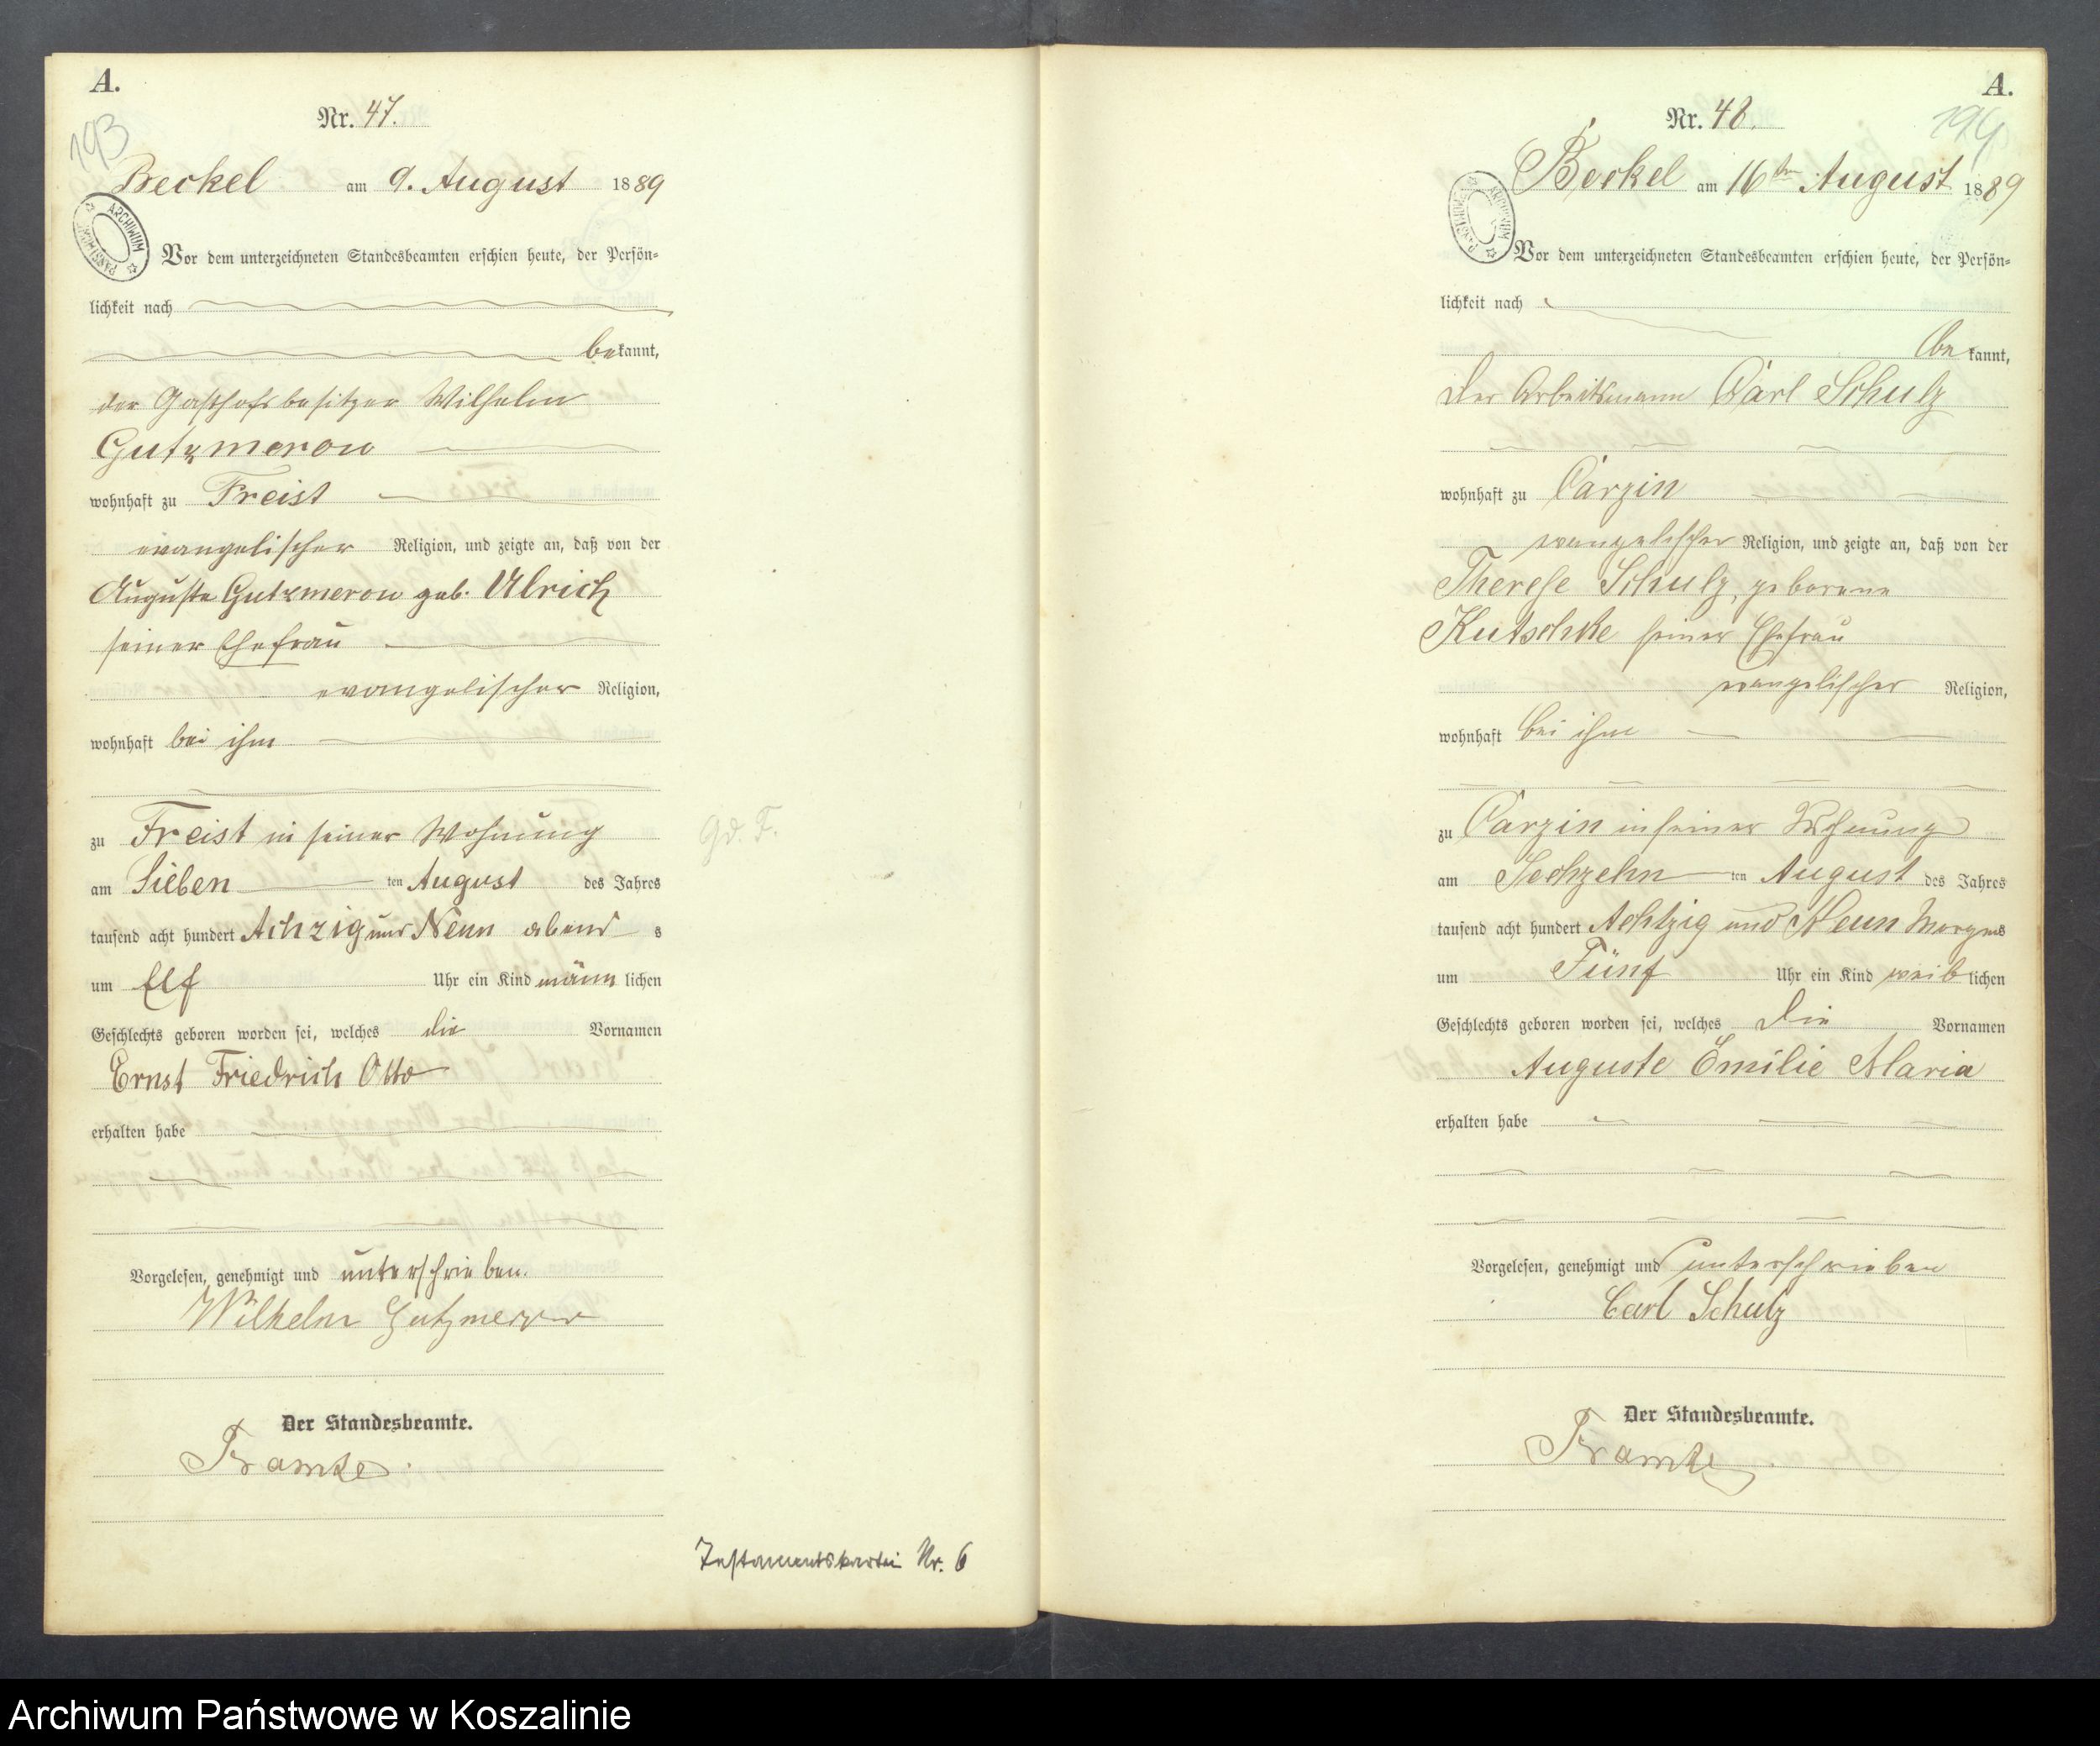 A.
Nr. 47.
193
Beckel am 9. August 1889
ARCHIWUM PAŃSTWOWE
Vor dem unterzeichneten Standesbeamten erschien heute, der Persön-
lichkeit nach
bekannt,
der Gasthofsbesitzer Wilhelm
Gutzmerow
wohnhaft zu Freist
evangelischer Religion, und zeigte an, daß von der
Auguste Gutzmerow geb. Ulrich
seiner Ehefrau
evangelischer Religion,
wohnhaft bei ihm
zu Freist in seiner Wohnung
am Sieben ten August des Jahres
tausend acht hundert Achzig und Neun abend s
um Elf Uhr ein Kind männ lichen
Geschlechts geboren worden sei, welches die Vornamen
Ernst Friedrich Otto
erhalten habe
Vorgelesen, genehmigt und unterschrieben.
Wilhelm Gutzmerow
Der Standesbeamte.
Framke.
Testamentskartei Nr. 6
A.
Nr. 48.
194
Beckel am 16ten August 1889
ARCHIWUM PAŃSTWOWE
Vor dem unterzeichneten Standesbeamten erschien heute, der Persön-
lichkeit nach
bekannt,
der Arbeitsmann Carl Schulz
wohnhaft zu Carzin
evangelischer Religion, und zeigte an, daß von der
Therese Schulz, geborene
Kutschke seiner Ehefrau
evangelischer Religion,
wohnhaft bei ihm
zu Carzin in seiner Wohnung
am Sechzehn ten August des Jahres
tausend acht hundert Achtzig und Neun Morgens
um Fünf Uhr ein Kind weib lichen
Geschlechts geboren worden sei, welches die Vornamen
Auguste Emilie Maria
erhalten habe
Vorgelesen, genehmigt und unterschrieben
Carl Schulz
Der Standesbeamte.
Framke.
Archiwum Państwowe w Koszalinie